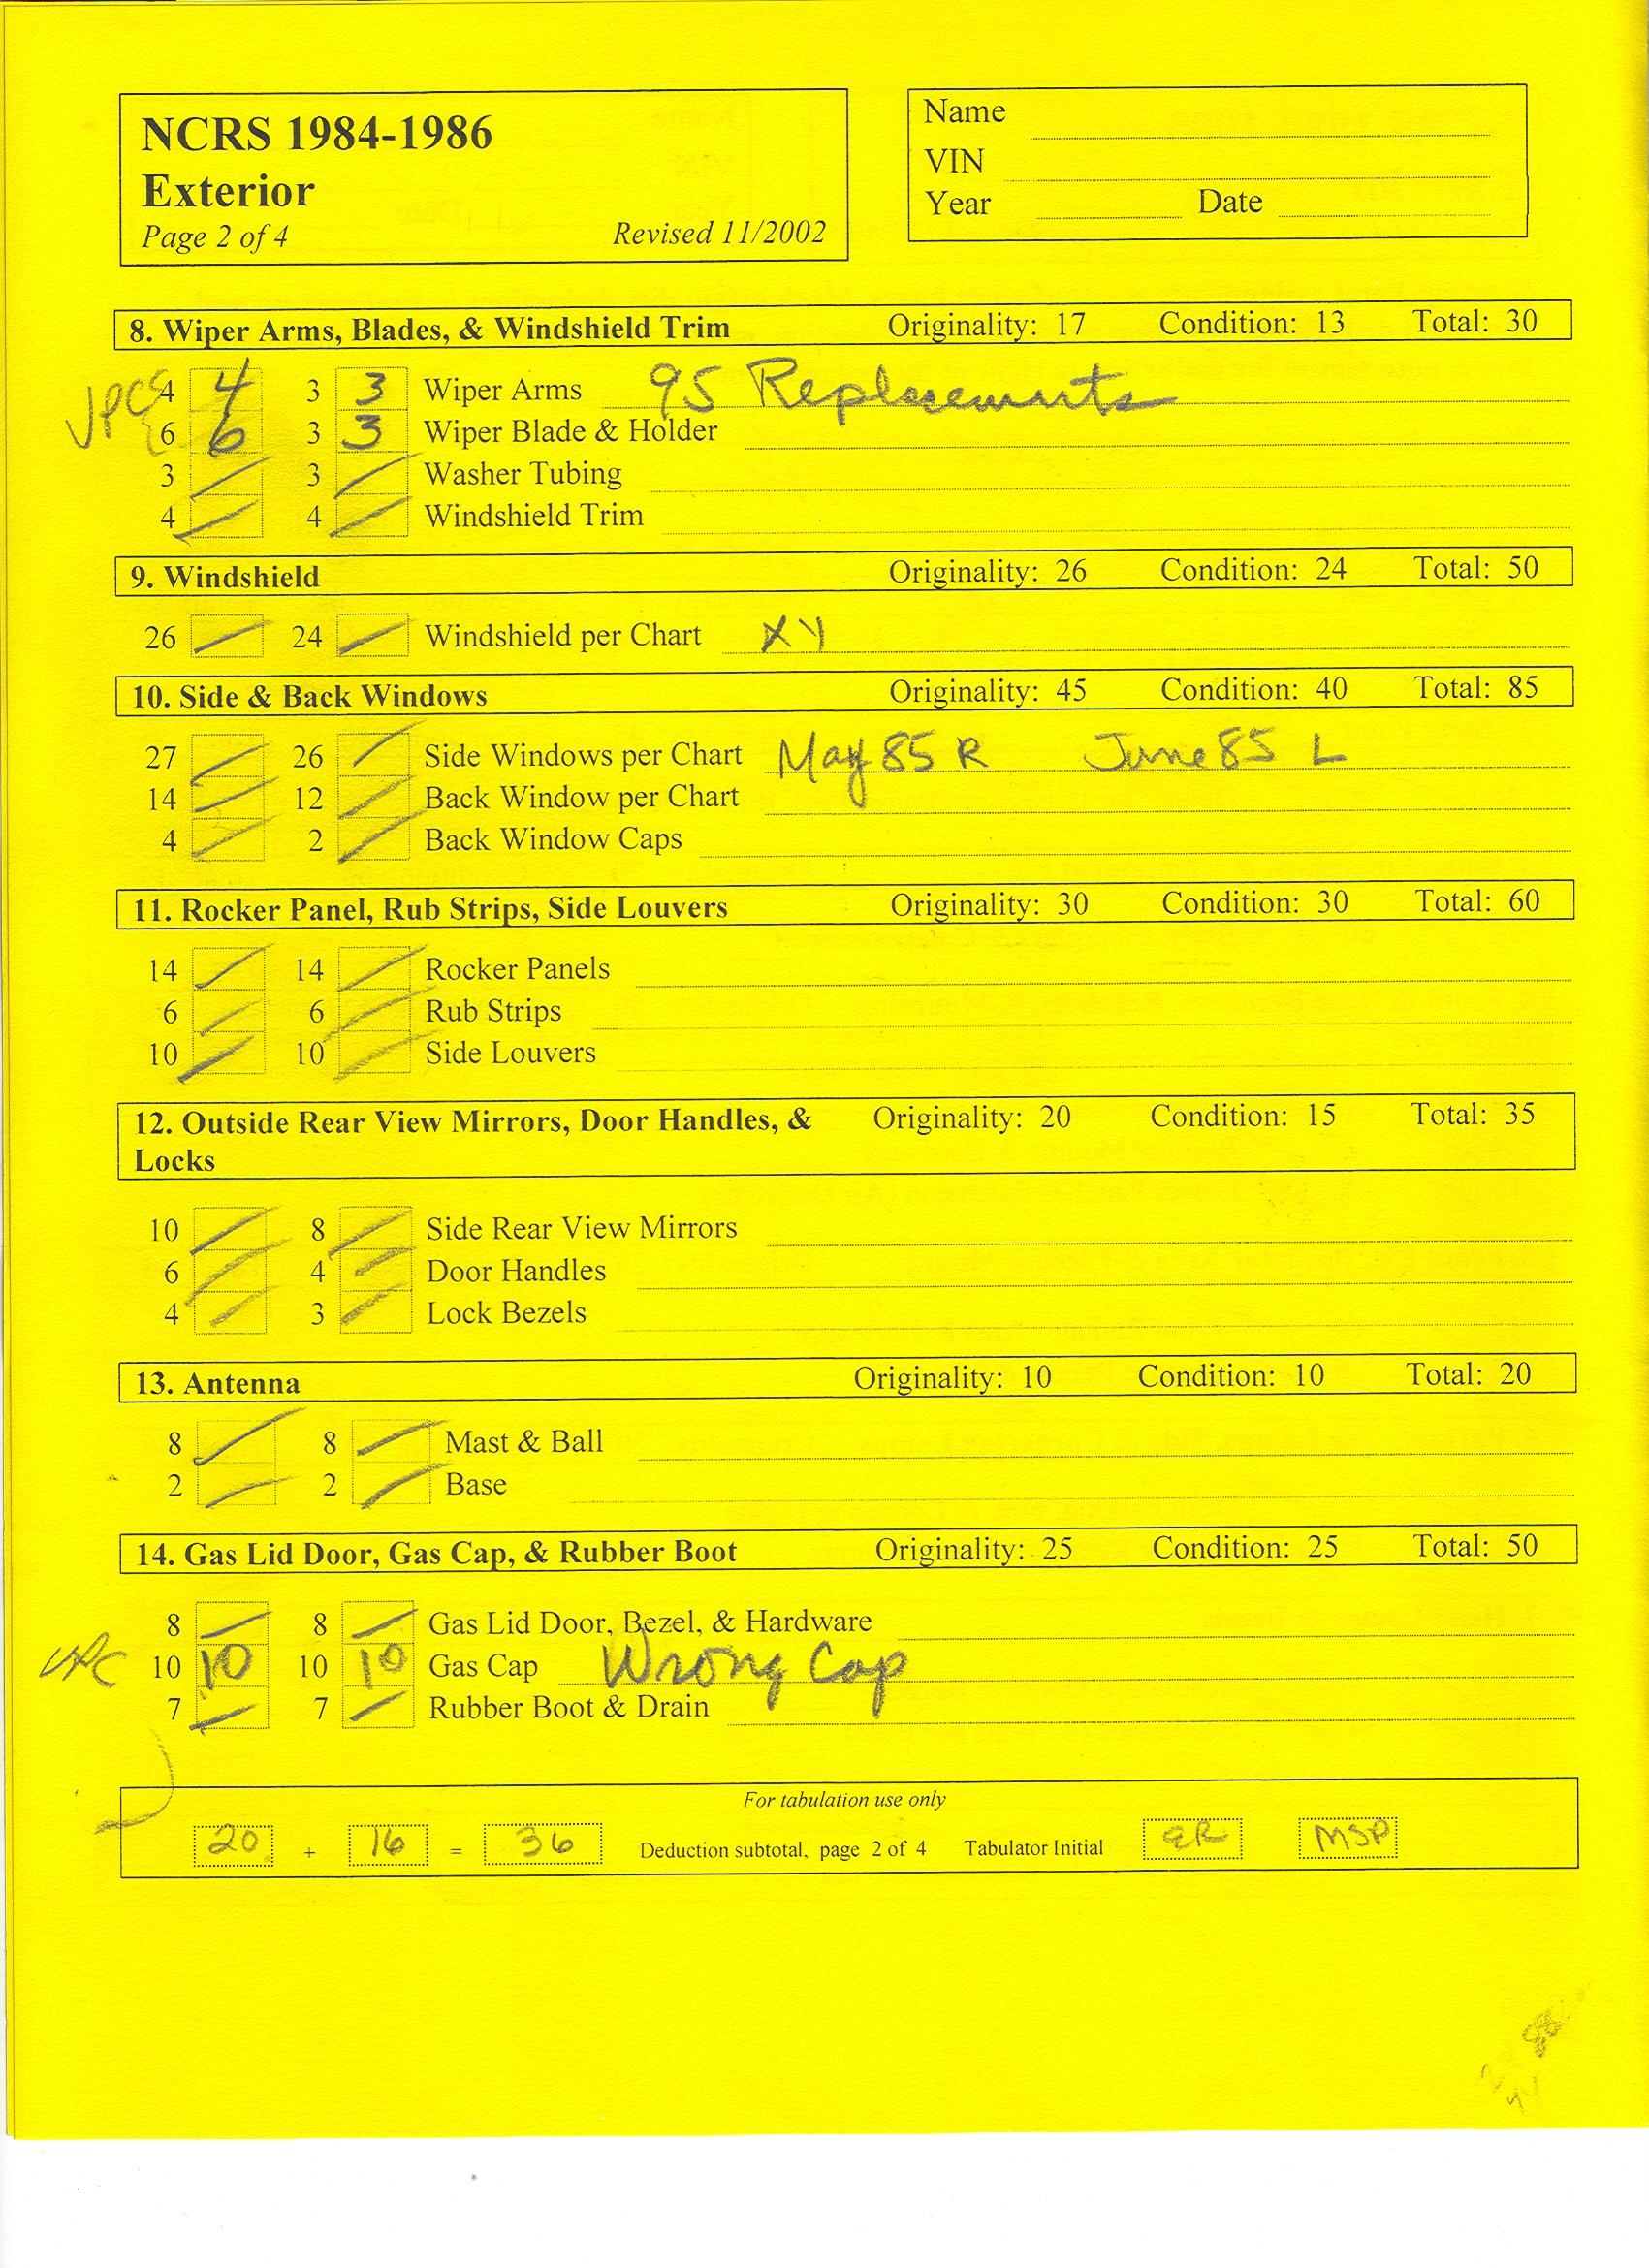 NCRS 1984-1986
Exterior
Page 2 of 4 Revised 11/2002
Name
VIN
Year Date
8. Wiper Arms, Blades, & Windshield Trim Originality: 17 Condition: 13 Total: 30
4 4 3 3 Wiper Arms 95 Replacements
6 6 3 3 Wiper Blade & Holder
3 3 Washer Tubing
4 4 Windshield Trim
9. Windshield Originality: 26 Condition: 24 Total: 50
26 24 Windshield per Chart XY
10. Side & Back Windows Originality: 45 Condition: 40 Total: 85
27 26 Side Windows per Chart May 85 R June 85 L
14 12 Back Window per Chart
4 2 Back Window Caps
11. Rocker Panel, Rub Strips, Side Louvers Originality: 30 Condition: 30 Total: 60
14 14 Rocker Panels
6 6 Rub Strips
10 10 Side Louvers
12. Outside Rear View Mirrors, Door Handles, & Originality: 20 Condition: 15 Total: 35
Locks
10 8 Side Rear View Mirrors
6 4 Door Handles
4 3 Lock Bezels
13. Antenna Originality: 10 Condition: 10 Total: 20
8 8 Mast & Ball
2 2 Base
14. Gas Lid Door, Gas Cap, & Rubber Boot Originality: 25 Condition: 25 Total: 50
8 8 Gas Lid Door, Bezel, & Hardware
10 10 10 10 Gas Cap Wrong Cap
7 7 Rubber Boot & Drain
For tabulation use only
20 + 16 = 36 Deduction subtotal, page 2 of 4 Tabulator Initial ER MSP